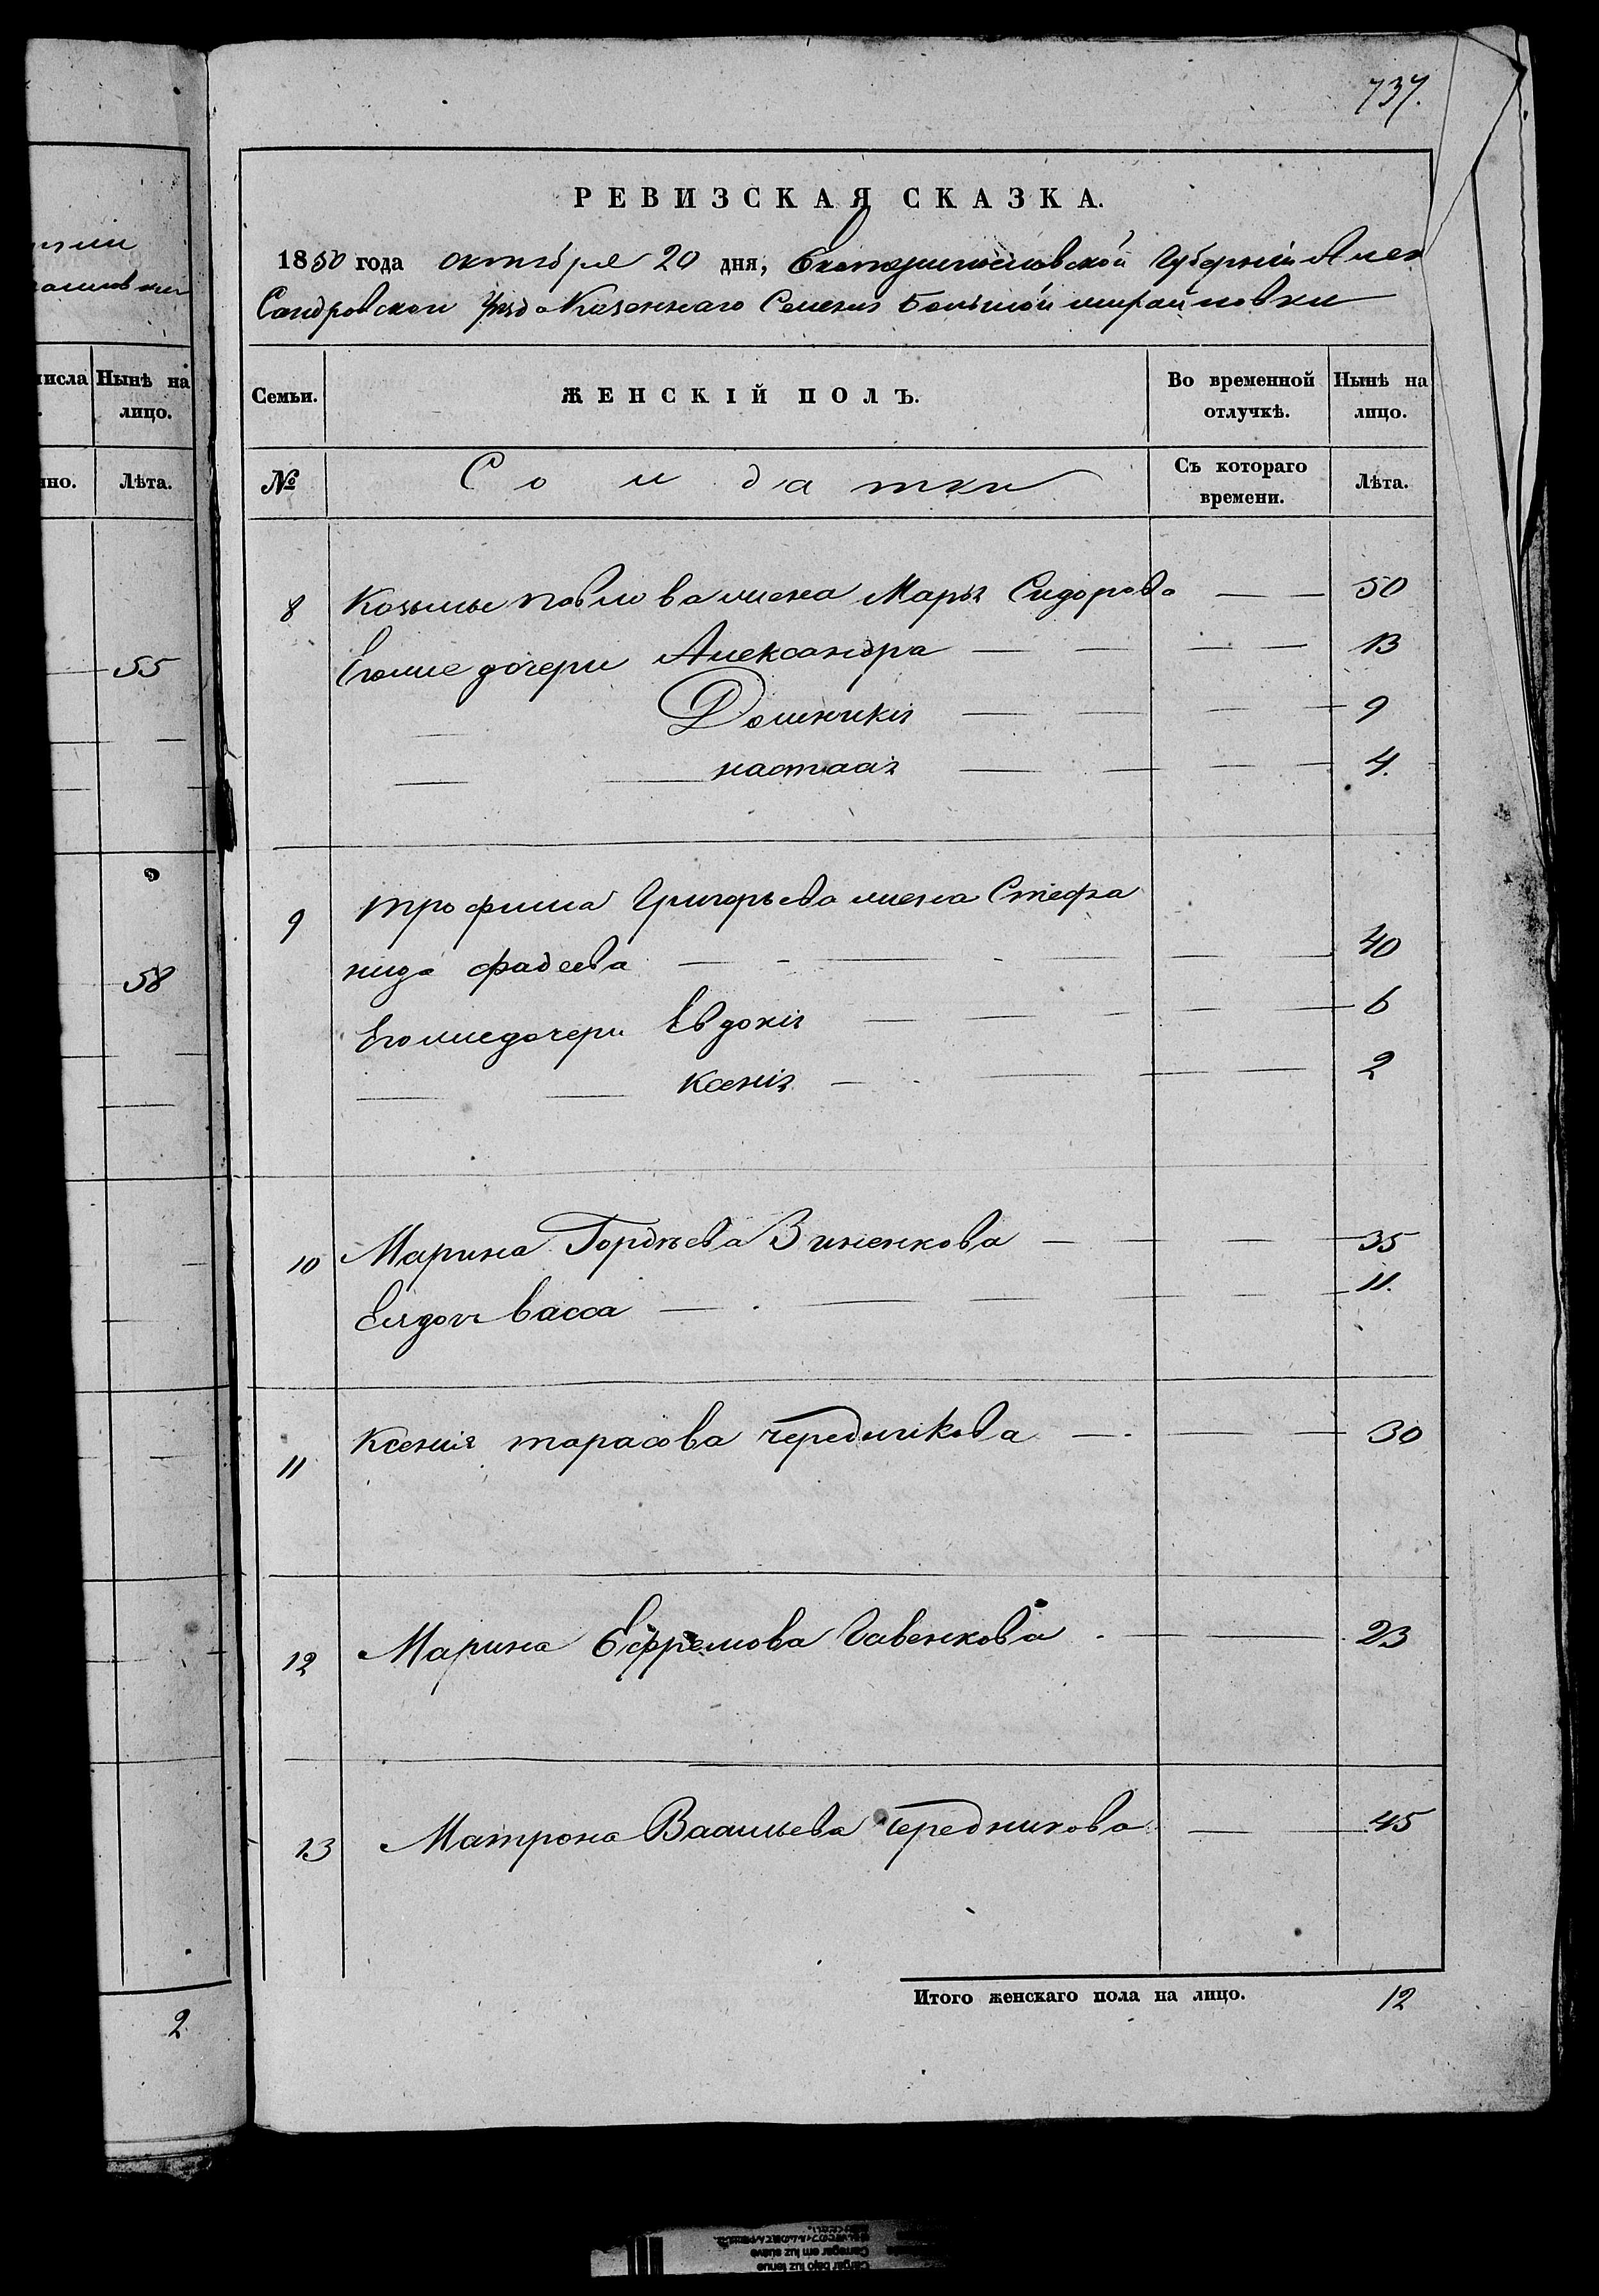 737.
РЕВИЗСКАЯ СКАЗКА.
1850 года октября 20 дня, Екатеринославской Губерніи Алек
Сандровскои Уезда Казеннаго Селенія Большой михайловки
Семьи.
ЖЕНСКІЙ ПОЛЪ.
Во временной отлучкѣ.
Нынѣ на лицо.
№
Солдатки
Съ котораго времени.
Лѣта.
8 Козьмы павлова жена Марья Сидорова 50
Егоже дочери Александра 13
Домникія 9
настасія 4.
9 трофима Григорьева жена Стефа
нида фадеева 40
Егоже дочери Евдокія 6
Ксенія 2
10 Марина Гордѣева Зиненкова 35
Ея дочь васса 11.
11 Ксенія тарасова чередникова 30
12 Марина Ефремова Савенкова 23
13 Матрона Васильева Чередникова 45
Итого женскаго пола на лицо. 12
числа
Нынѣ на лицо.
Лѣта.
55
58
2